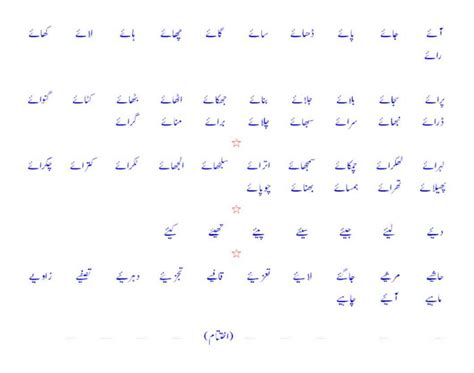 آئے جائے پائے ڈھائے سائے گائے چھائے ہائے لائے کھائے
رائے
پرائے سجائے بلائے جلائے بنائے جھکائے اٹھائے بٹھائے کٹائے گنوائے
ڈرائے نبھائے سرائے سبھائے چلائے برائے منائے گرائے
☆
لہرائے ٹھکرائے چمکائے سمجھائے اترائے سلجھائے الجھائے ٹکرائے کترائے چکرائے
پھیلائے تھرائے ہمسائے بھنائے چوپائے
☆
دیے لیئے جیئے سیئے پیئے تھیئے کیئے
☆
حاشیے مرثیے جاگیے لائیے تعزیے قافیے تجزیے دہریے تصفیے زاویے
ماہیے آیئے چاہیے
(اختتام)